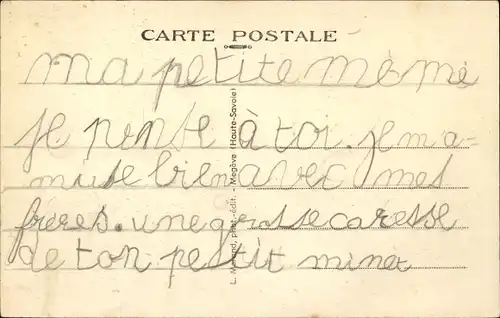 CARTE POSTALE
ma petite mémé
je pense à toi. je m'a-
muse bien avec mes
frères. une grosse caresse
de ton petit minet
L. Morand, phot.-édit. - Megève (Haute-Savoie)